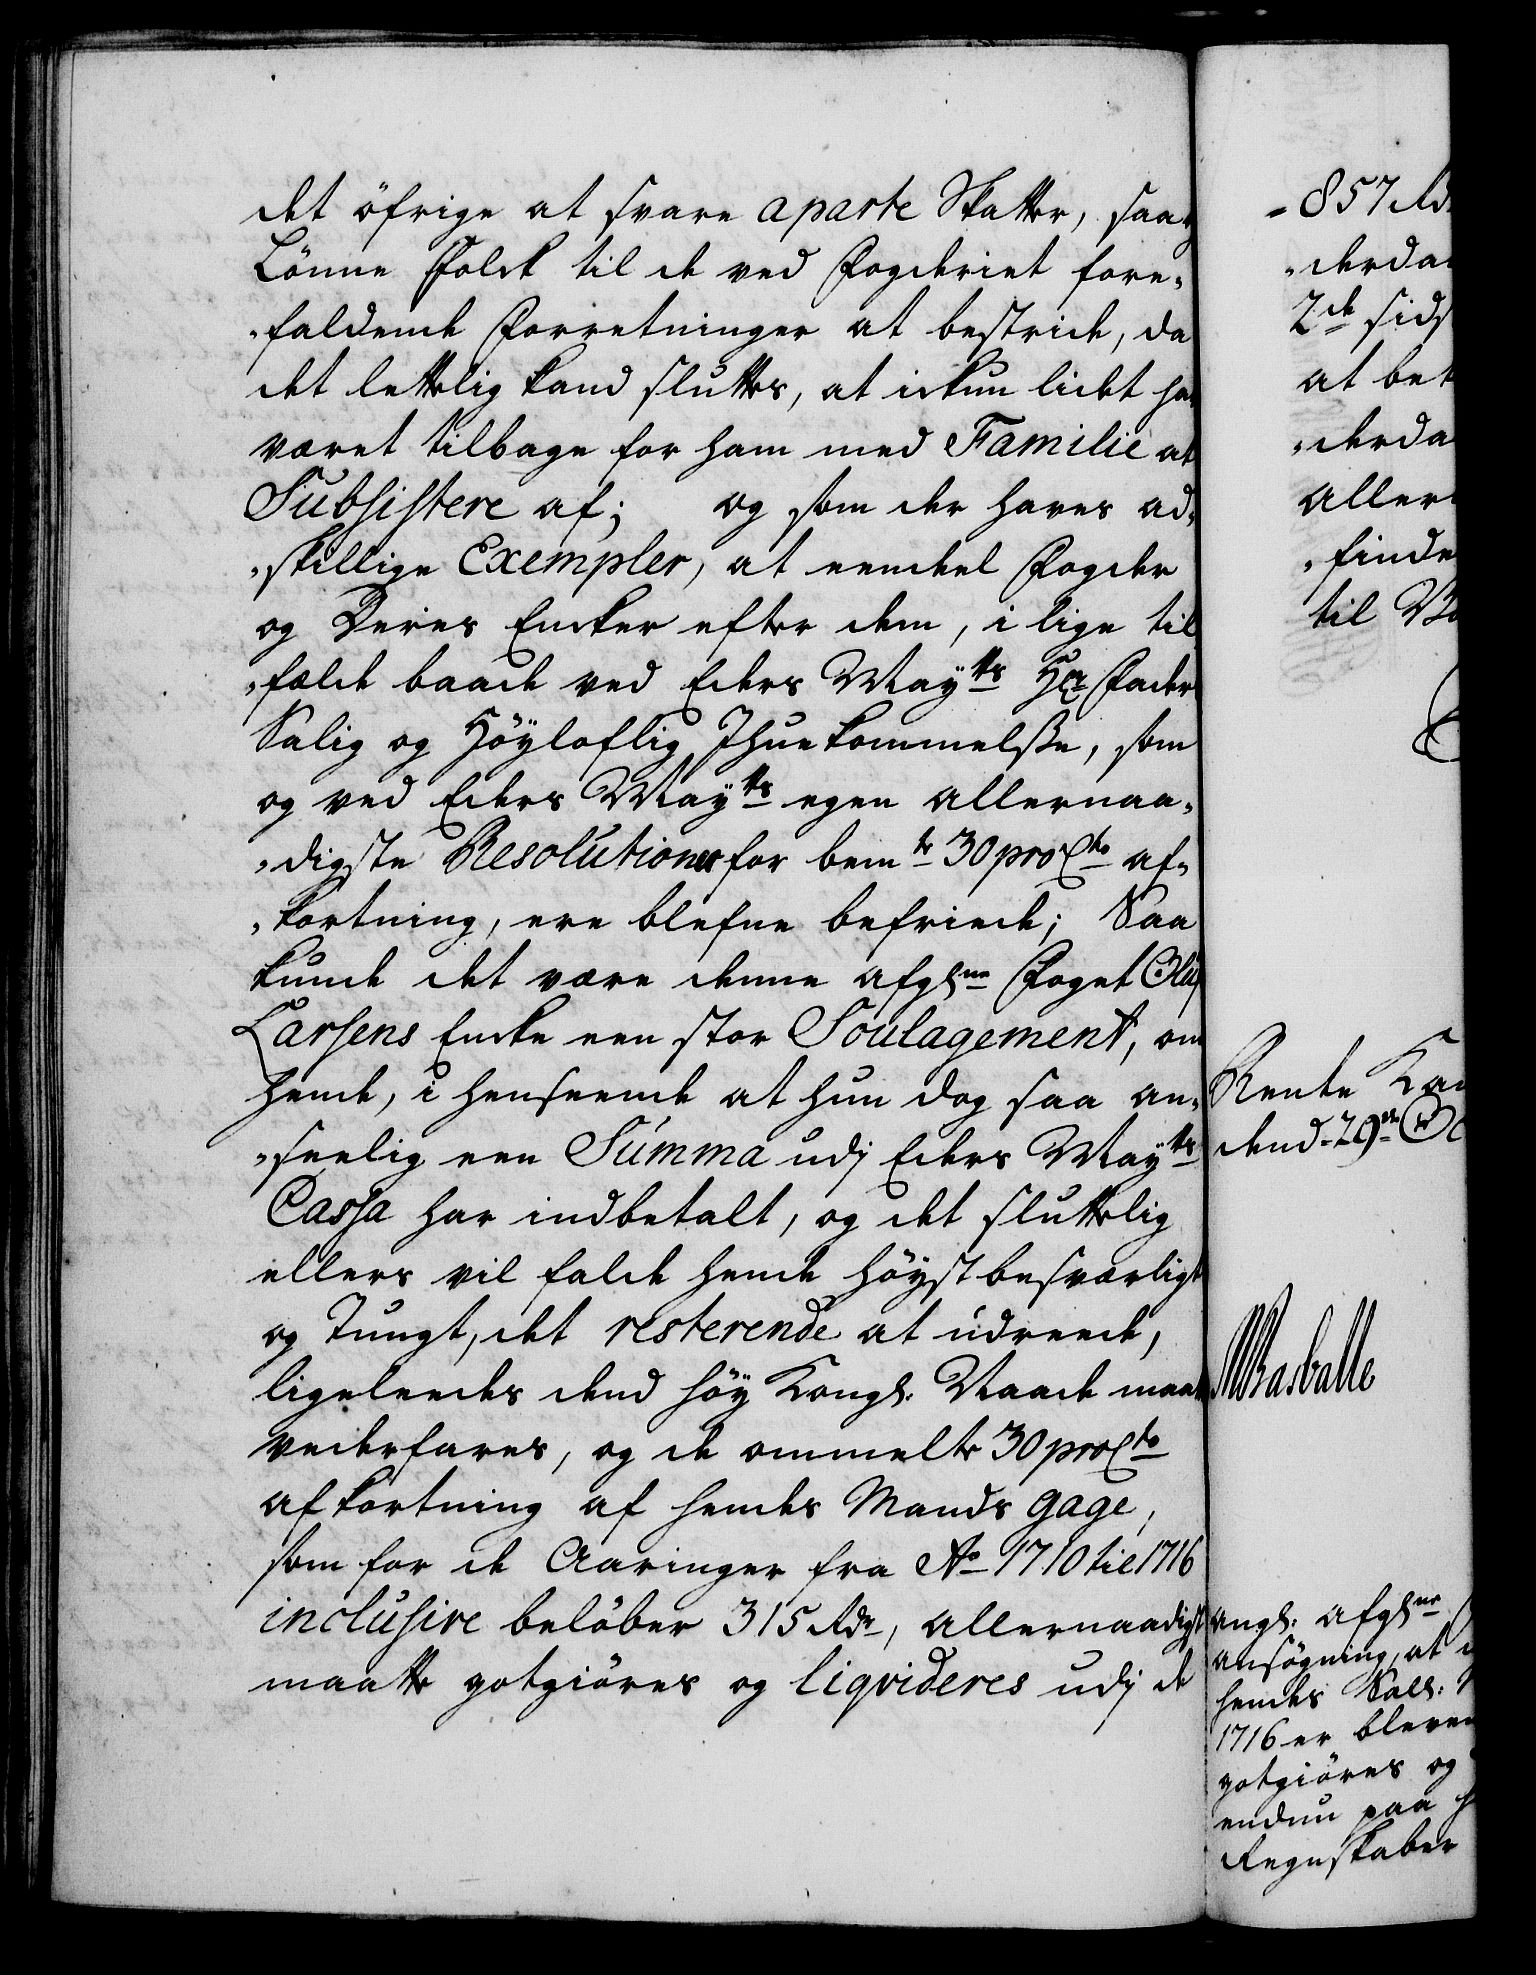 det öfrige at svare aparte Skatter, saa
Lönne Folck til de ved Fogderiet fore-
-faldende Forretninger at bestride, da
det lettelig kand sluttes, at ickun lidet ha
været tilbage for ham med Familie at
Subsistere af; og som der haves ad-
-skillige Exempler, at eendeel Fogder
og Deres Encker efter dem, i lige til
-fælde baade ved Eders Maytts Hr Fader
Salig og Höyloflig Ihuekommelsse, som
og ved Eders Maytts egen allernaa-
-digste Resolutioner for bemte 30 proCto af-
-kortning, ere blefne befriede; Saa
kunde det være denne afgl:ne Foget Oluf
Larsens Encke een stor Soulagement, om
hende, i henseende at hun dog saa an-
-seelig een Summa udj Eders Maytts
Cassa har indbetalt, og det sluttelig
ellers vil falde hende höyst besværligt
og Tungt, det resterende at udreede,
ligeleedes dend höy Kongl: Naade maatte
vederfares, og de ommelte 30 proCto
afkortning af hendes Mands gage,
som for de Aaringer fra Ao 1710 til 1716
inclusive belöber 315 Rdr, allernaadigst
maatte gotgiöres og liqvideres udj de
-857 Rd
-derda
2de sids
at bet
-derda
aller
-finde
til
Rente Kam
dend 29de Oc
angl: afgl:ne
ansögning, at
hendes Sall:
1716 er bleven
gotgiöres og
endnu paa h
Regnskaber